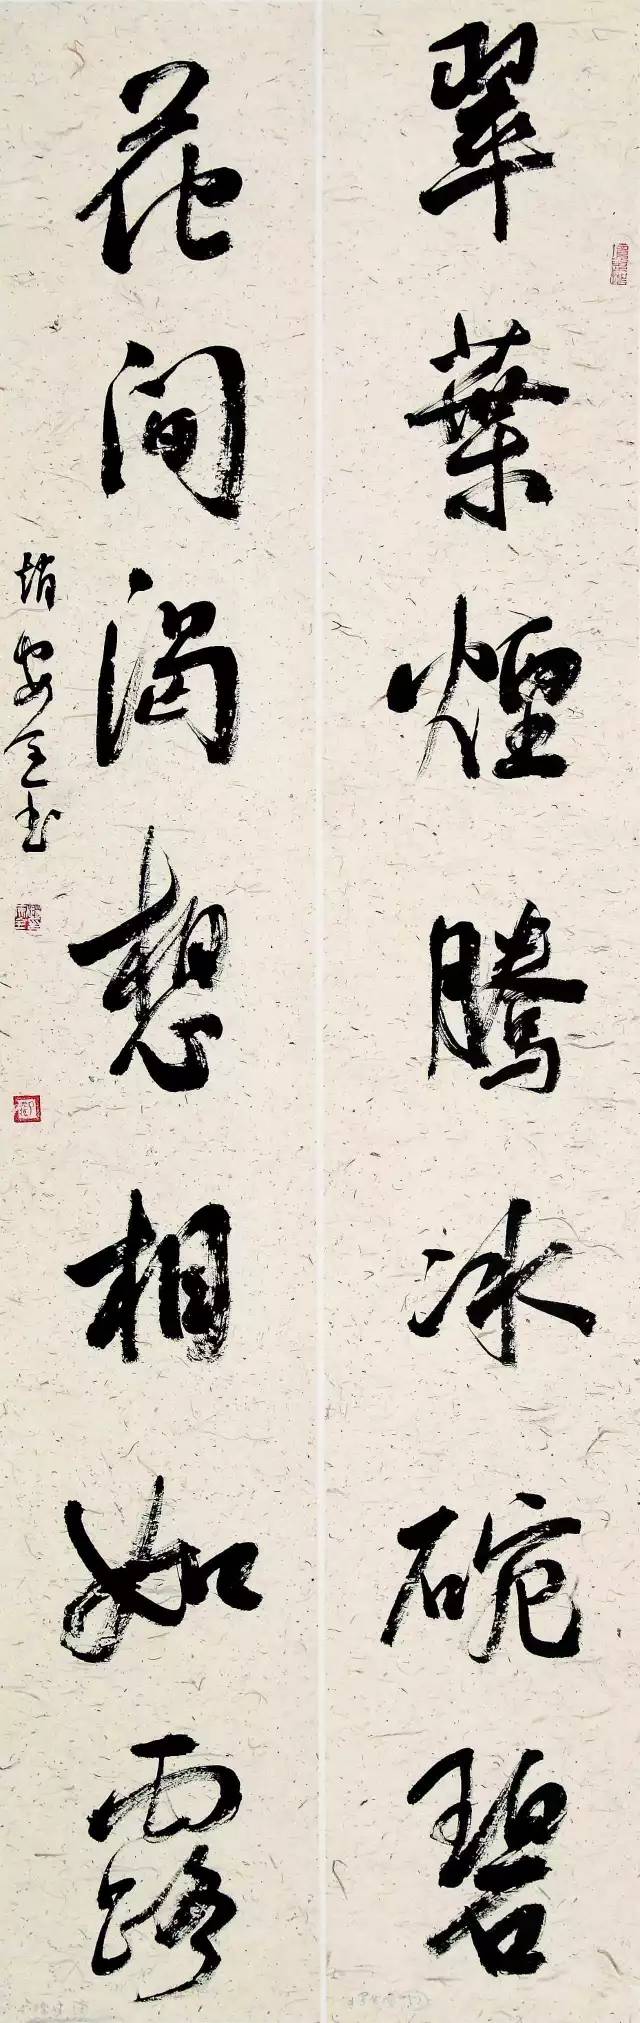 翠葉煙騰冰碗碧
花間渴想相如露
趙安悳书